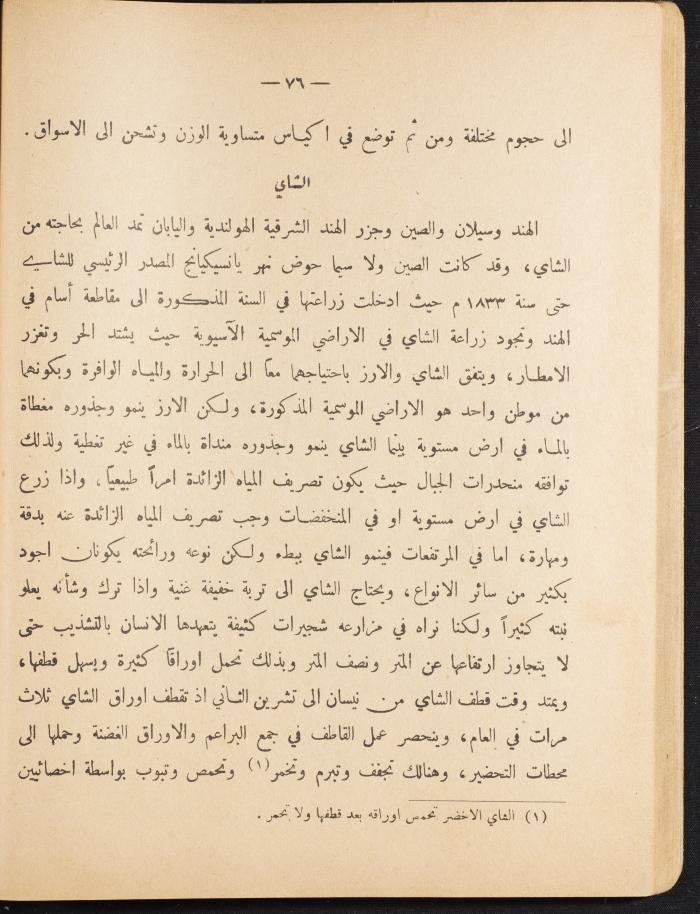 — ٧٦ —
الى حجوم مختلفة ومن ثم توضع في اكياس متساوية الوزن وتشحن الى الاسواق .
الشاي
الهند وسيلان والصين وجزر الهند الشرقية الهولندية واليابان تمد العالم بحاجته من
الشاي، وقد كانت الصين ولا سيما حوض نهر يانسيكيانج المصدر الرئيسي للشاي
حتى سنة ١٨٣٣ م حيث ادخلت زراعتها في السنة المذكورة الى مقاطعة أسام في
الهند وتجود زراعة الشاي في الاراضي الموسمية الآسيوية حيث يشتد الحر وتغزر
الامطار، ويتفق الشاي والارز باحتياجهما معاً الى الحرارة والمياه الوافرة وبكونهما
من موطن واحد هو الاراضي الموسمية المذكورة، ولكن الارز ينمو وجذوره مغطاة
بالماء في ارض مستوية بينما الشاي ينمو وجذوره منداة بالماء في غير تغطية ولذلك
توافقه منحدرات الجبال حيث يكون تصريف المياه الزائدة امراً طبيعياً، واذا زرع
الشاي في ارض مستوية او في المنخفضات وجب تصريف المياه الزائدة عنه بدقة
ومهارة، اما في المرتفعات فينمو الشاي ببطء ولكن نوعه ورائحته يكونان اجود
بكثير من سائر الانواع، ويحتاج الشاي الى تربة خفيفة غنية واذا ترك وشأنه يعلو
نبته كثيراً ولكنا نراه في مزارعه شجيرات كثيفة يتعهدها الانسان بالتشذيب حتى
لا يتجاوز ارتفاعها عن المتر ونصف المتر وبذلك تحمل اوراقاً كثيرة ويسهل قطفها،
ويمتد وقت قطف الشاي من نيسان الى تشرين الثاني اذ تقطف اوراق الشاي ثلاث
مرات في العام، وينحصر عمل القاطف في جمع البراعم والاوراق الغضنة وحملها الى
محطات التحضير، وهنالك تجفف وتبرم وتخمر(١) وتحمص وتبوب بواسطة اخصائيين
(١) الشاي الاخضر تحمس اوراقه بعد قطفها ولا تحمر .